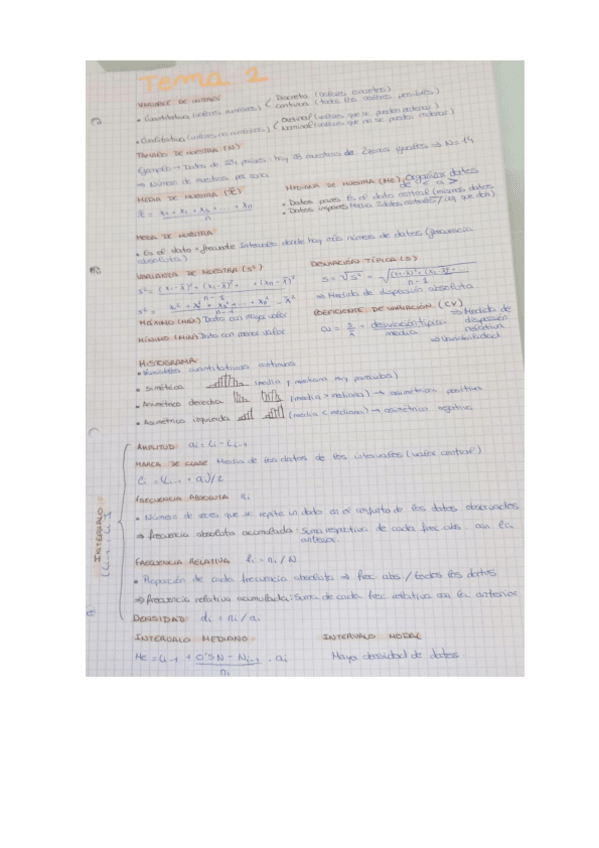 Tema 2
VARIABLE DE INTERÉS
• Cuantitativa (valores numéricos) Discreta (valores concretos)
Continua (todos los valores posibles)
• Cualitativa (valores no numéricos) Ordinal (valores que se pueden ordenar)
Nominal (valores que no se pueden ordenar)
TAMAÑO DE MUESTRA (N)
Ejemplo → Datos de
⇒ Número de muestras por zona
MEDIA DE MUESTRA (x̄)
x̄ = x1 + x2 + x3 + ... + xn / n
MEDIANA DE MUESTRA (Me) organizar datos de < a >
• Datos pares Es el dato central (mismos datos
• Datos impares Media 2 datos centrales
MODA DE MUESTRA
• Es el dato + frecuente Intervalo donde hay más número de datos (frecuencia
absoluta)
VARIANZA DE MUESTRA (S²)
S² = (x1 - x̄)² + (x2 - x̄)² + ... + (xn - x̄)² / n - 1
S² = x1² + x2² + x3² + ... + xn² / n - 1 - x̄²
DESVIACIÓN TÍPICA (S)
S = √S² = √(x1 - x̄)² + (x2 - x̄)² + ... / n - 1
⇒ Medida de dispersión absoluta
MÁXIMO (MÁX) Dato con mayor valor
MÍNIMO (MIN) Dato con menor valor
COEFICIENTE DE VARIACIÓN (CV)
CV = S / x̄ = desviación típica / media
⇒ Medida de dispersión relativa
⇒ Variabilidad
HISTOGRAMA
• Variables cuantitativas continuas
• Simétrica (media y mediana muy parecidas)
• Asimétrica derecha (media > mediana) → asimétrica positiva
• Asimétrica izquierda (media < mediana) → asimétrica negativa
INTERVALO
(Li-1, Li]
AMPLITUD ai = Li - Li-1
MARCA DE CLASE Media de los datos de los intervalos (valor central)
FRECUENCIA ABSOLUTA ni
• Número de veces que se repite un dato en el conjunto de los datos observados
⇒ frecuencia absoluta acumulada: Suma respectiva de cada frec. abs. con la
anterior.
FRECUENCIA RELATIVA fi = ni / N
• Proporción de cada frecuencia absoluta ⇒ frec abs / todos los datos
⇒ frecuencia relativa acumulada: Suma de cada frec relativa con la anterior
DENSIDAD di = ni / ai
INTERVALO MEDIANO INTERVALO MODAL
Me = Li-1 + 0'5N - Ni-1 / ni · ai Mayor densidad de datos